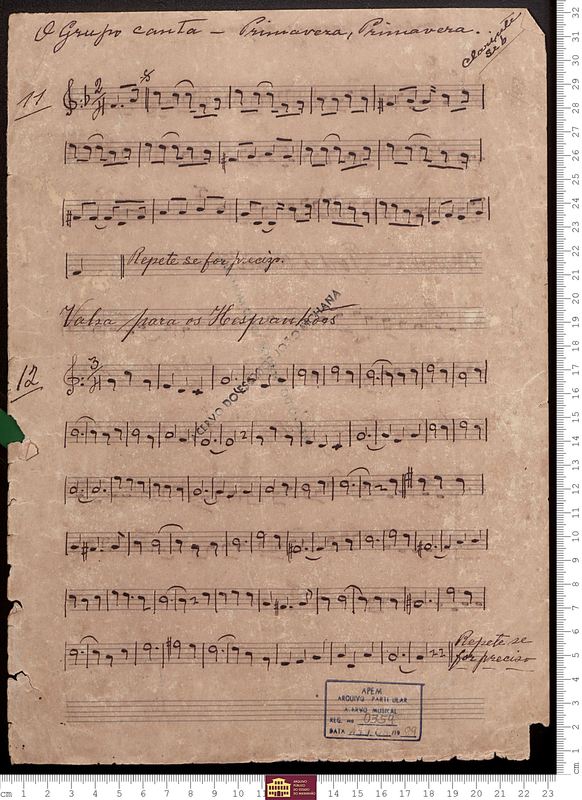 O Grupo canta – Primavera, Primavera.
Clarinete
11
Repete se for precizo.
Valsa para os Hespanhoes
12
Repete se
for preciso
APEM
ARQUIVO PARTICULAR
ACERVO MUSICAL
REG. Nº 0354
DATA
ARQUIVO
PÚBLICO
DO ESTADO
DO MARANHÃO
cm 1 2 3 4 5 6 7 8 9 10 11 12 13 14 15 16 17 18 19 20 21 22 23
cm 1 2 3 4 5 6 7 8 9 10 11 12 13 14 15 16 17 18 19 20 21 22 23 24 25 26 27 28 29 30 31 32